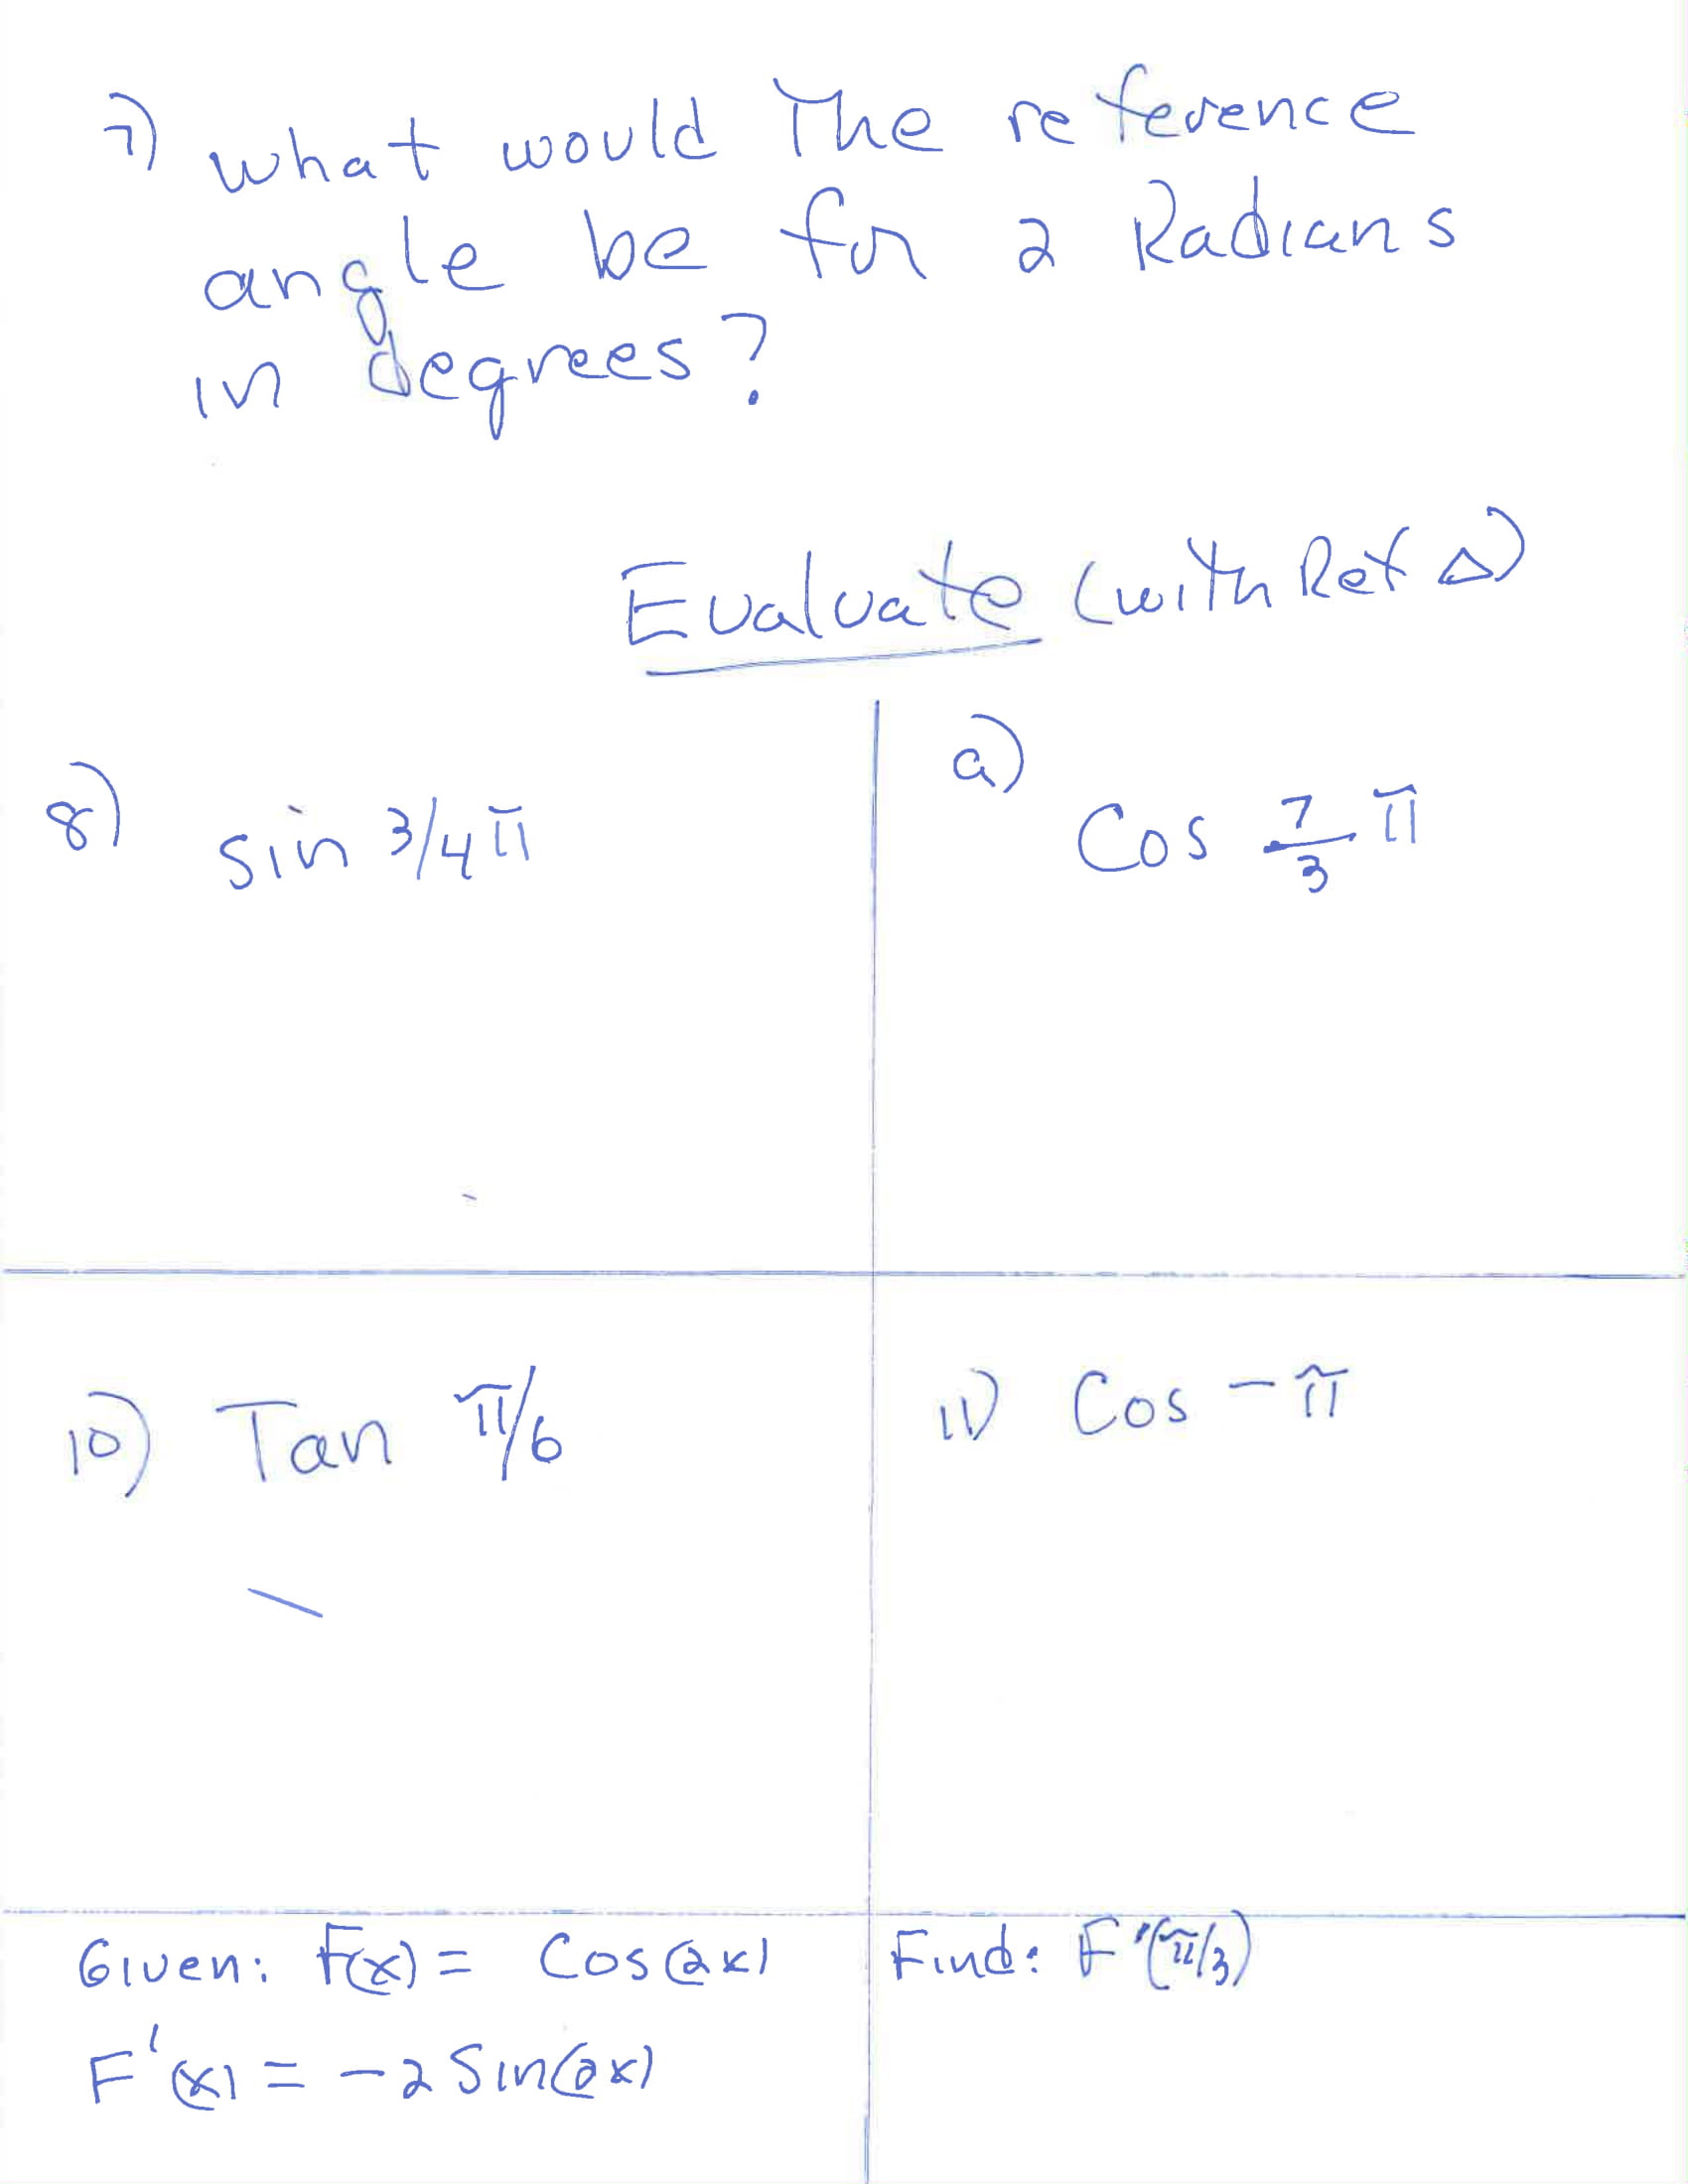 7) what would The reference
angle be for 2 Radians
in degrees?
Evaluate (with Ref △)
8) sin 3/4 π
9) Cos 7/3 π
10) Tan π/6
11) Cos -π
Given: F(x) = Cos(2x)
F'(x) = -2 Sin(2x)
Find: F'(π/3)